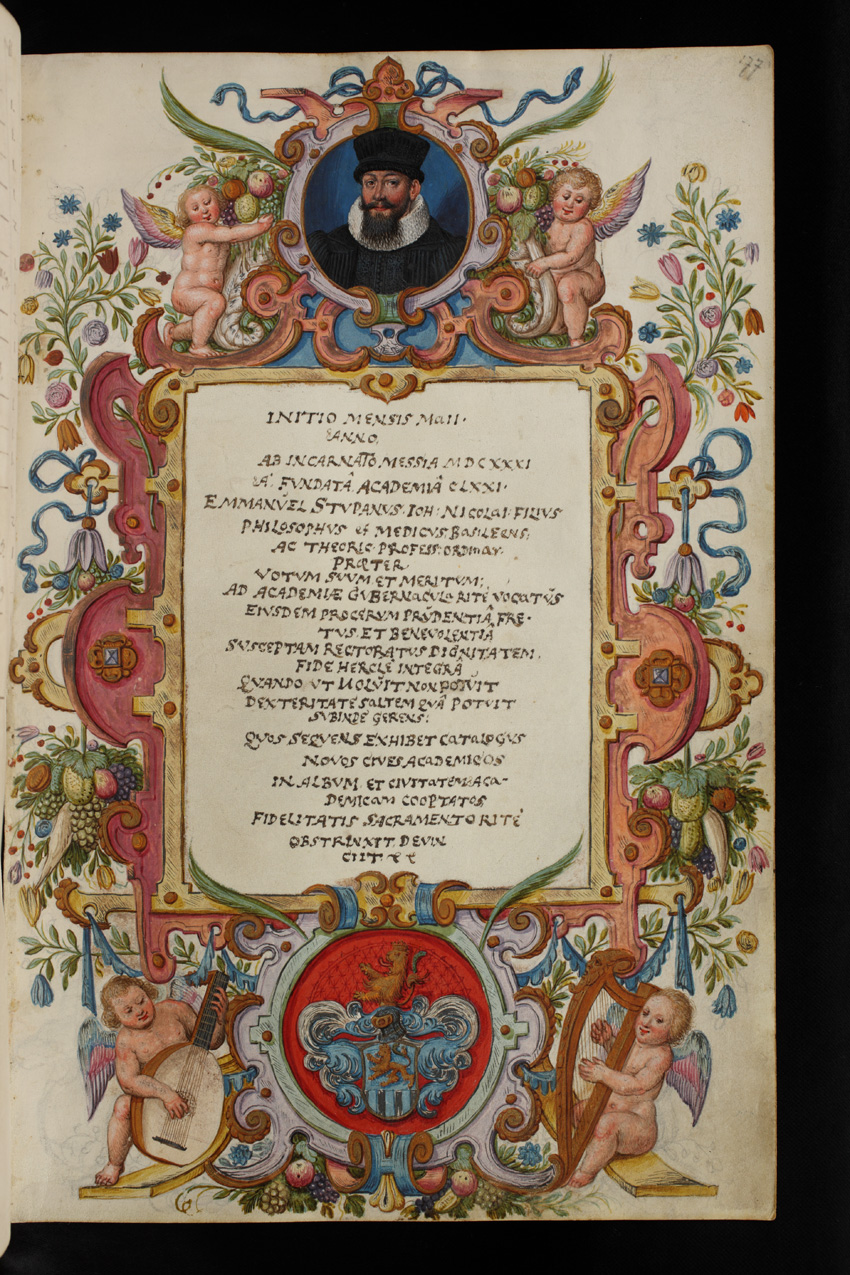 177
INITIO MENSIS MAII.
ANNO,
AB INCARNATO MESSIA MDCXXXI
A. FUNDATÂ ACADEMIÂ CLXXI.
EMMANVEL STVPANVS. IOH: NICOLAI: FILIVS
PHILOSOPHVS et MEDICVS. BASILEENS:
AC THEORIC. PROFESS: ORDINAR.
PRÆTER
VOTVM SVVM ET MERITVM;
AD ACADEMIÆ GVBERNACVLA RITE VOCATVS
EIVSDEM PROCERVM PRVDENTIÂ FRE-
TVS. ET BENEVOLENTIÂ
SVSCEPTAM RECTORATVS DIGNITATEM.
FIDE HERCLE INTEGRÂ
QVANDO VT VOLVIT NON POTVIT
DEXTERITATE SALTEM QVÂ POTVIT
SVBINDE GERENS:
QVOS SEQVENS EXHIBET CATALOGVS
NOVOS CIVES ACADEMICOS
IN ALBVM ET CIVITATEM ACA-
DEMICAM COOPTATOS
FIDELITATIS SACRAMENTO RITE
OBSTRINXIT DEVIN
CIIT